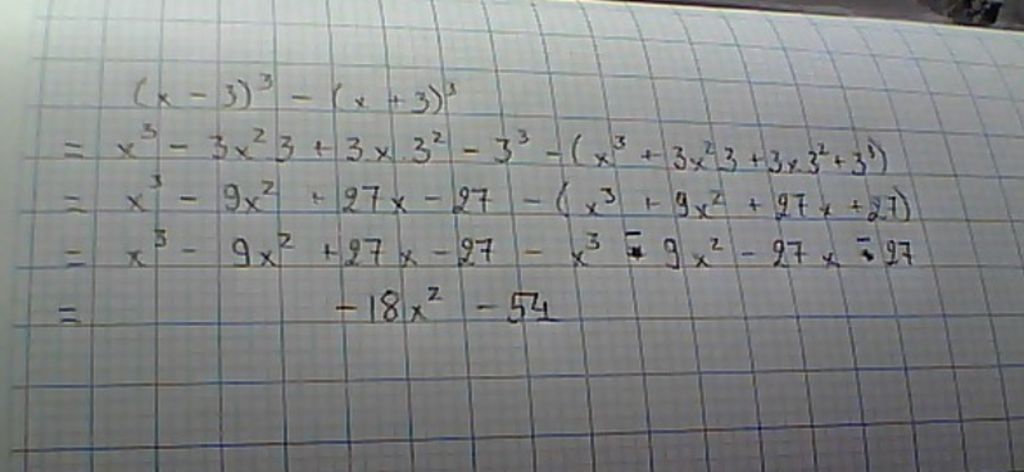 (x - 3)³ - (x + 3)³
= x³ - 3x²3 + 3x.3² - 3³ - (x³ + 3x²3 + 3x3² + 3³)
= x³ - 9x² + 27x - 27 - (x³ + 9x² + 27x + 27)
= x³ - 9x² + 27x - 27 - x³ - 9x² - 27x - 27
= -18x² - 54